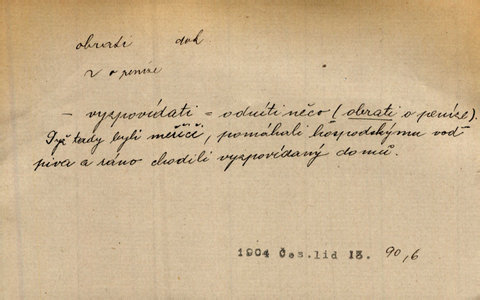 obrati dok.
z o peníze
– vyzpovídati = odníti něco (obrati o peníze).
Dyž tady byli měříčí, pomáhali hospodskýmu vod
piva a ráno chodili vyzpovídaný domů.
1904 Čes.lid 13. 90,6